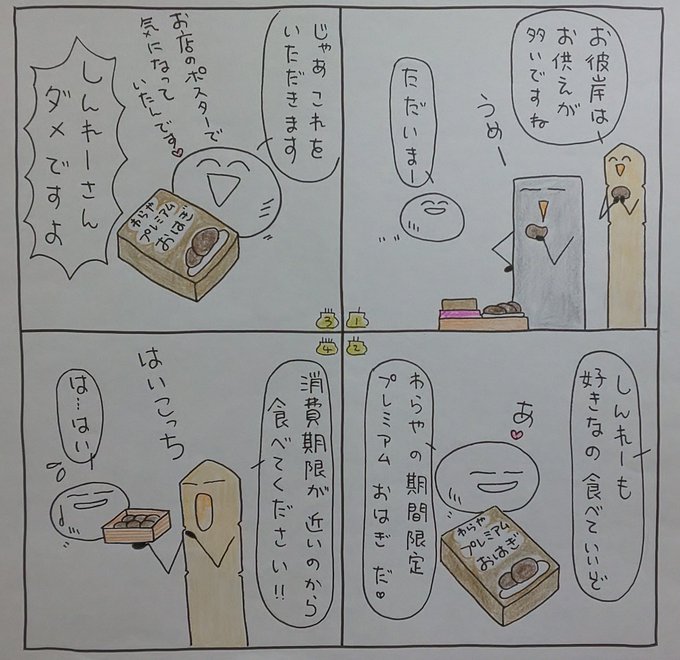 お彼岸は
お供えが
多いですね
うめー
ただいまー
1
しんれーも
好きなの食べていいぞ
あ♥
わらやの期間限定
プレミアムおはぎだ♥
わらや
プレミアム
おはぎ
2
じゃあこれを
いただきます
お店のポスターで
気になって
いたんです♥
わらや
プレミアム
おはぎ
しんれーさん
ダメですよ
3
消費期限が近いのから
食べてください!!
はいこっち
は…はい
4